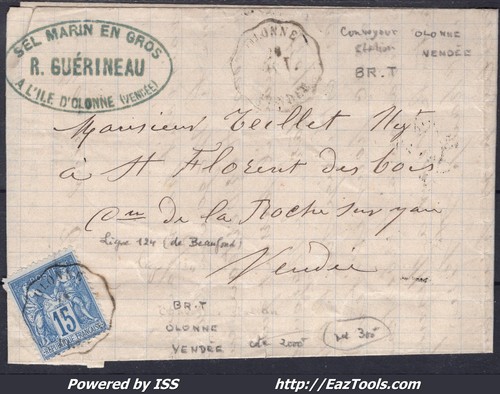 SEL MARIN EN GROS
R. GUÉRINEAU
A L'ILE D'OLONNE (VENDÉE)
OLONNE
Convoyeur OLONNE
station VENDÉE
BR.T
Monsieur Teillet
à St Florent des bois
Con de la Roche sur yon
Ligne 124 (de Beauford)
Vendée
OLONNE
15
BR.T
OLONNE
VENDÉE cote 2000f
300f
Powered by ISS http://EazTools.com